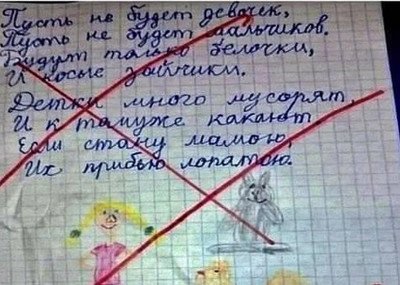 Пусть не будет девочек,
Пусть не будет мальчиков.
Будут только белочки,
И косые зайчики.
Детки много мусорят,
И к томуже какают
Если стану мамою,
Их прибью лопатою.